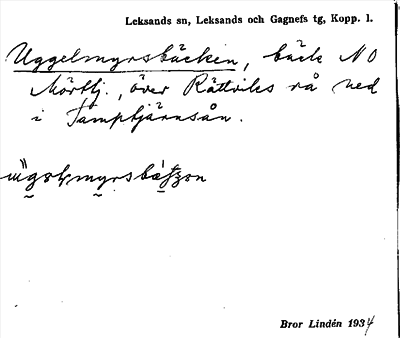 Leksands sn, Leksands och Gagnefs tg, Kopp. l.
Uggelmyrsbäcken, bäck NO
Mörttj., över Rättviks rå ned
i Tämptjärnsån.
Bror Lindén 1934